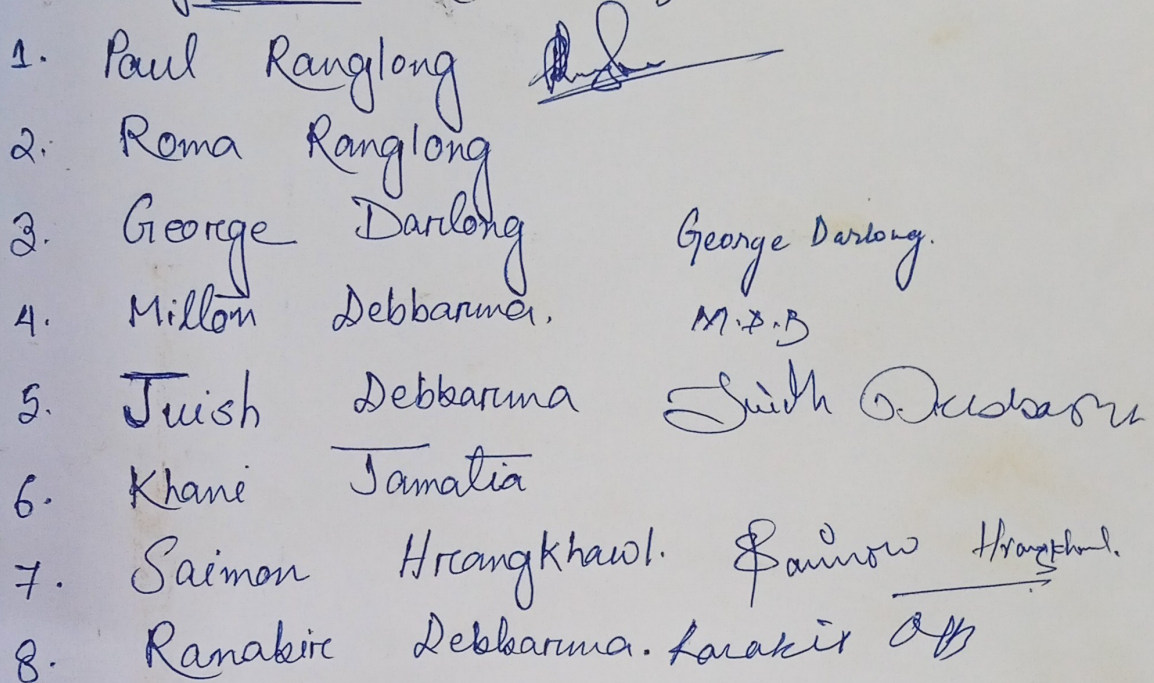 1. Paul Ranglong
2. Roma Ranglong
3. George Darlong George Darlong.
4. Millon Debbarma. M.D.B
5. Juish Debbarma
6. Khani Jamatia
7. Saimon Hrangkhawl. Saimon Hrangkhawl.
8. Ranabir Debbarma.